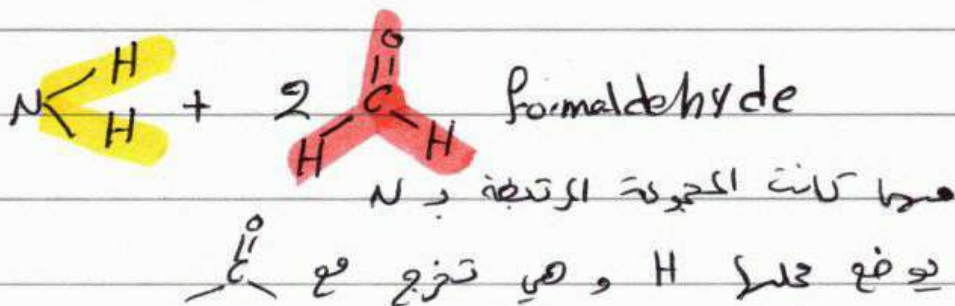 N H H + 2 H C O H formaldehyde
مهما كانت المجموعة المرتبطة بـ N
يوضع محلها H و هي تخرج مع C O